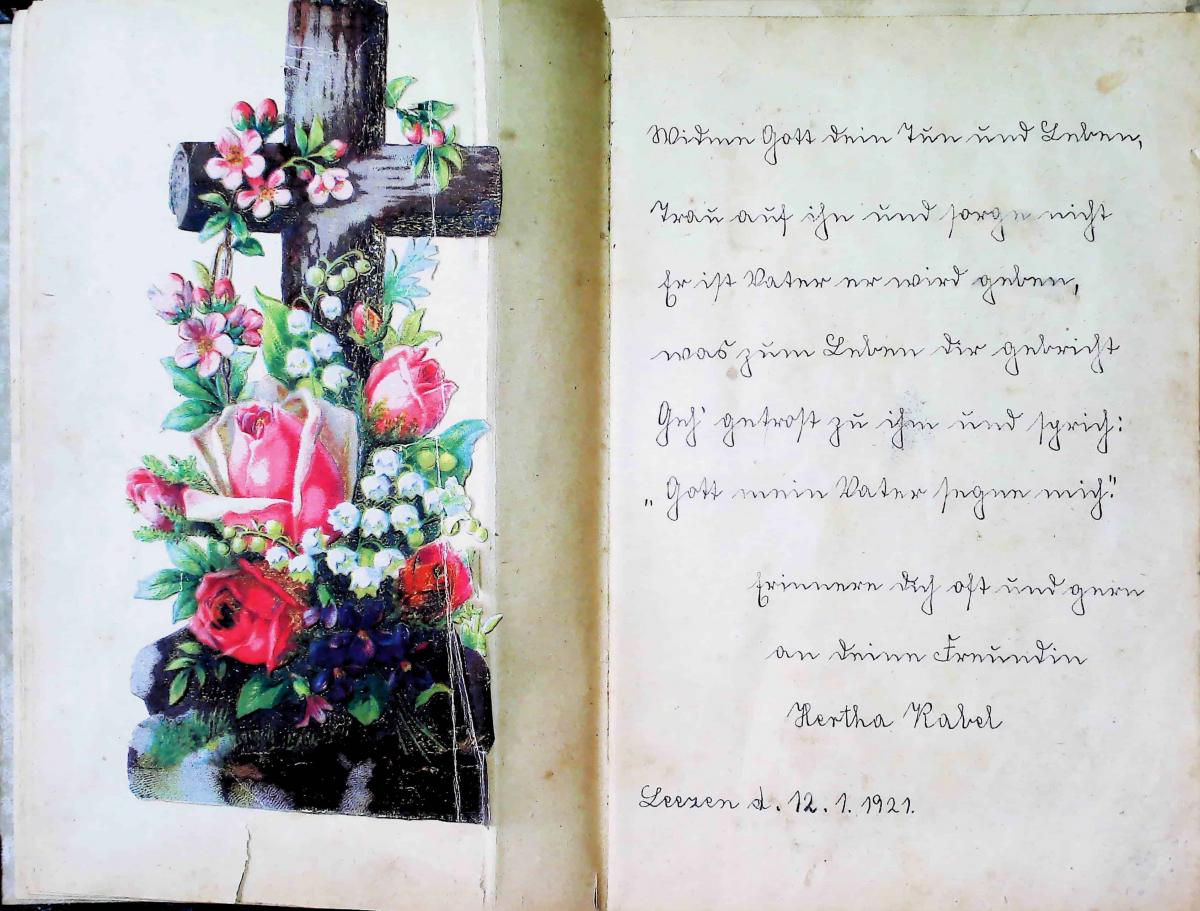 Widme Gott dein Tun und Leben,
Trau auf ihn und sorge nicht
Er ist Vater er wird geben,
was zum Leben dir gebricht
Geh' getrost zu ihm und sprich:
„Gott mein Vater segne mich."
Erinnere dich oft und gern
an deine Freundin
Hertha Kabel
Leezen d. 12. 1. 1921.